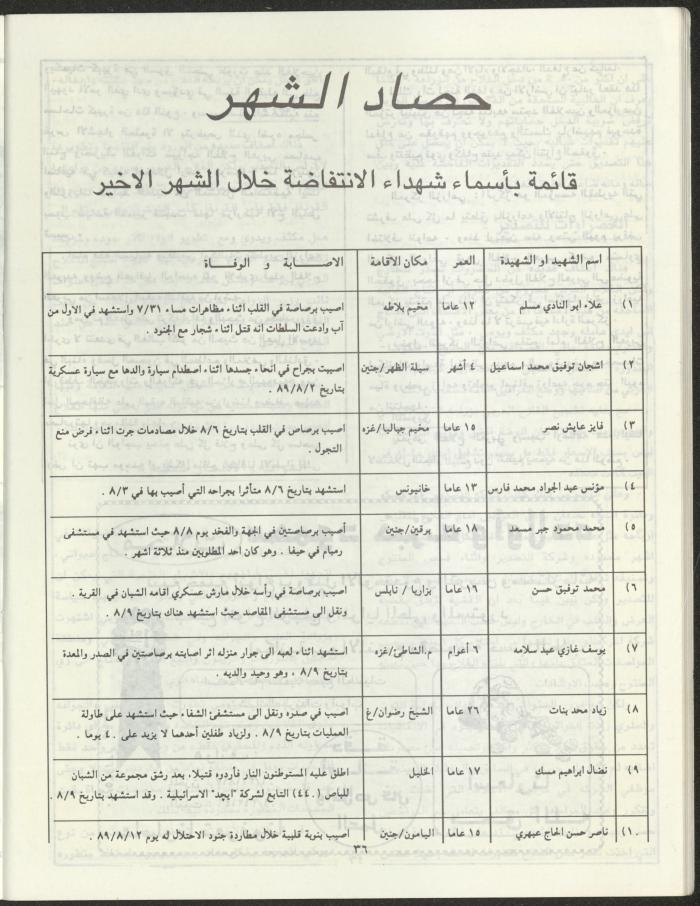 حصاد الشهر
قائمة بأسماء شهداء الانتفاضة خلال الشهر الاخير
اسم الشهيد او الشهيدة العمر مكان الاقامة الاصـــابة و الوفــاة
١) علاء ابو النادي مسلم ١٢ عاما مخيم بلاطه اصيب برصاصة في القلب اثناء مظاهرات مساء ٧/٣١ واستشهد في الاول من
آب وادعت السلطات انه قتل اثناء شجار مع الجنود .
٢) اشجان توفيق محمد اسماعيل ٤ أشهر سيلة الظهر/جنين اصيبت بجراح في انحاء جسدها اثناء اصطدام سيارة والدها مع سيارة عسكرية
بتاريخ ٨٩/٨/٢ .
٣) فايز عايش نصر ١٥ عاما مخيم جباليا/غزه اصيب برصاص في القلب بتاريخ ٨/٦ خلال مصادمات جرت اثناء فرض منع
التجول .
٤) مؤنس عبد الجواد محمد فارس ١٣ عاما خانيونس استشهد بتاريخ ٨/٦ متأثرا بجراحه التي أصيب بها في ٨/٣ .
٥) محمد محمود جبر مسعد ١٨ عاما برقين/جنين أصيب برصاصتين في الجهة والفخد يوم ٨/٨ حيث استشهد في مستشفى
رمبام في حيفا . وهو كان احد المطلوبين منذ ثلاثة اشهر .
٦) محمد توفيق حسن ١٦ عاما بزاريا / نابلس اصيب برصاصة في رأسه خلال مارش عسكري اقامه الشبان في القرية .
ونقل الى مستشفى المقاصد حيث استشهد هناك بتاريخ ٨/٩ .
٧) يوسف غازي عبد سلامه ٦ أعوام م.الشاطئ/غزه استشهد اثناء لعبه الى جوار منزله اثر اصابته برصاصتين في الصدر والمعدة
بتاريخ ٨/٩ ، وهو وحيد والديه .
٨) زياد محد بنات ٢٦ عاما الشيخ رضوان/غ اصيب في صدره ونقل الى مستشفئ الشفاء حيث استشهد على طاولة
العمليات بتاريخ ٨/٩ . ولزياد طفلين أحدهما لا يزيد على ٤٠ يوما .
٩) نضال ابراهيم مسك ١٧ عاما الخليل اطلق عليه المستوطنون النار فأردوه قتيلا، بعد رشق مجموعة من الشبان
للباص (٤٤٠) التابع لشركة "ايچد" الاسرائيلية . وقد استشهد بتاريخ ٨/٩ .
١٠) ناصر حسن الحاج عبهري ١٥ عاما اليامون/جنين اصيب بنوبة قلبية خلال مطاردة جنود الاحتلال له يوم ٨٩/٨/١٢ .
٣٦